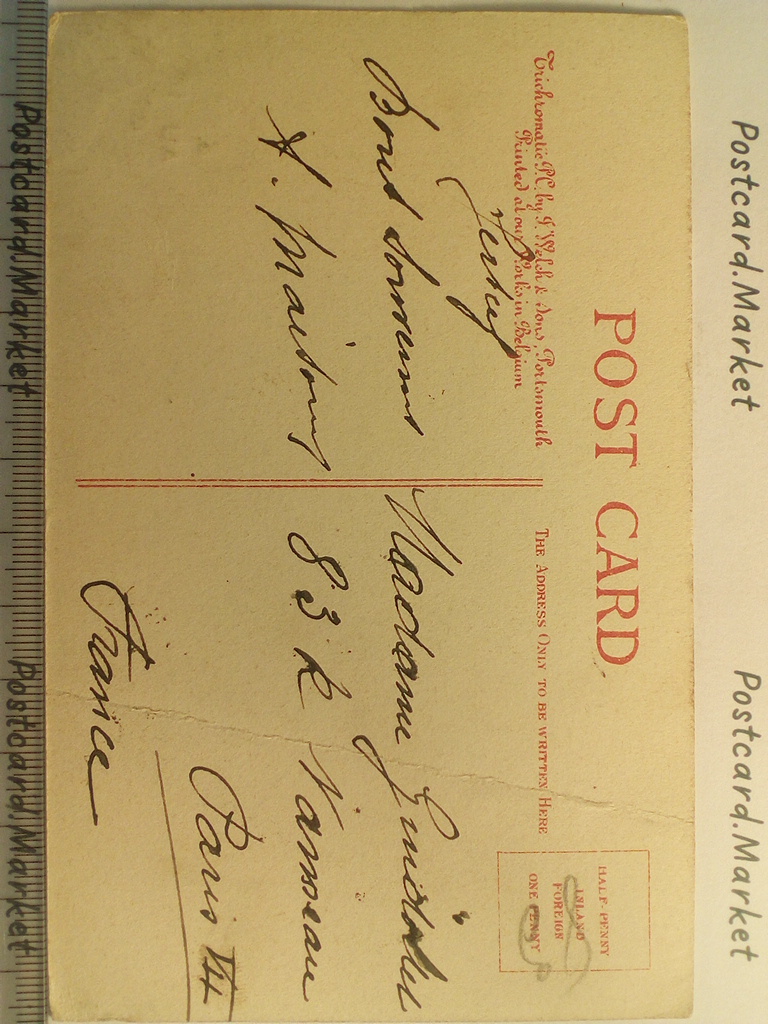 POST CARD
Trichromatic P.C. by J. Welch & Sons, Portsmouth
Printed at our Works in Belgium
THE ADDRESS ONLY TO BE WRITTEN HERE
HALF-PENNY
INLAND
FOREIGN
ONE PENNY
Jersey
Bons souvenirs
Madame
83 R Vanneau
Paris VII
France
Postcard.Market
Postcard.Market
Postcard.Market
Postcard.Market